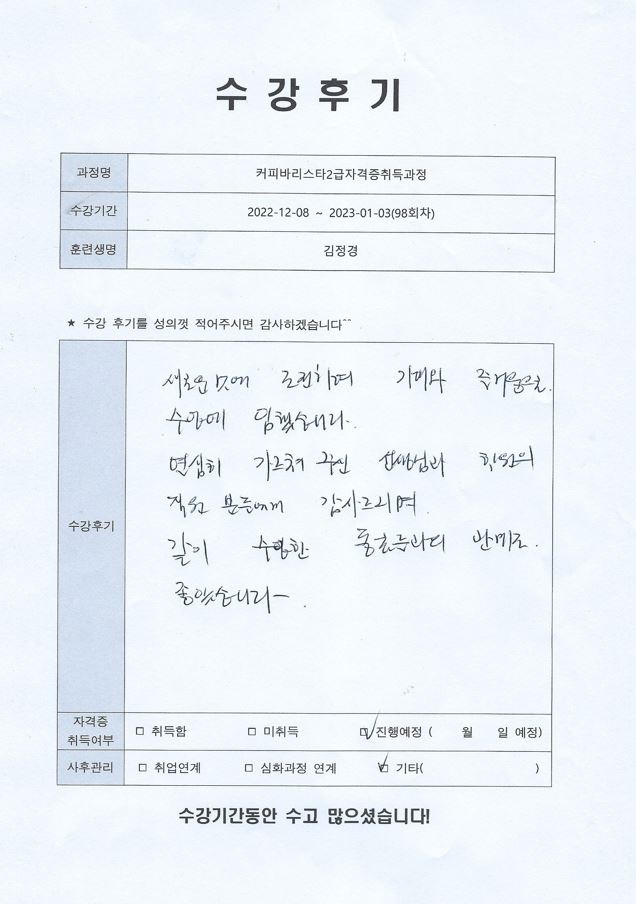 수 강 후 기
과정명 커피바리스타2급자격증취득과정
수강기간 2022-12-08 ~ 2023-01-03(98회차)
훈련생명 김정경
★ 수강 후기를 성의껏 적어주시면 감사하겠습니다^^
새로운 것에 도전하며 기대와 즐거움으로
수강에 임했습니다.
열심히 가르쳐 주신 선생님과 학원의
직원 분들에게 감사드리며
같이 수강한 동료들과의 만남도
좋았습니다.
수강후기
자격증
취득여부 □ 취득함 □ 미취득 ☑ 진행예정 ( 월 일 예정)
사후관리 □ 취업연계 □ 심화과정 연계 ☑ 기타( )
수강기간동안 수고 많으셨습니다!